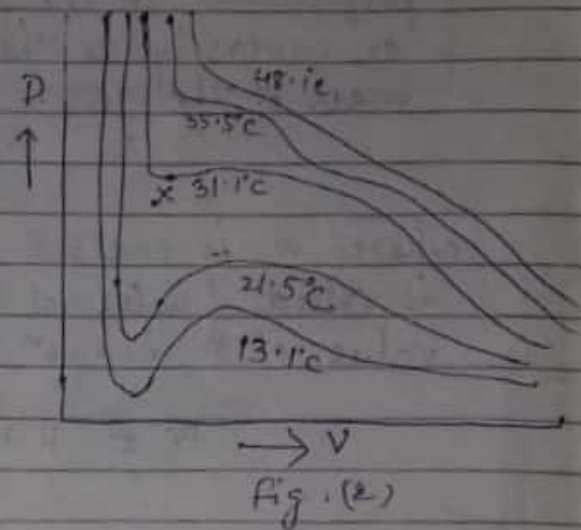 P
48.1°C
35.5°C
x 31.1°C
21.5°C
13.1°C
→ V
fig. (2)